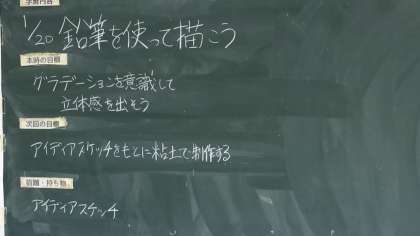 学習内容
1/20 鉛筆を使って描こう
本時の目標
グラデーションを意識して
立体感を出そう
次回の目標
アイディアスケッチをもとに粘土で制作する
宿題・持ち物
アイディアスケッチ